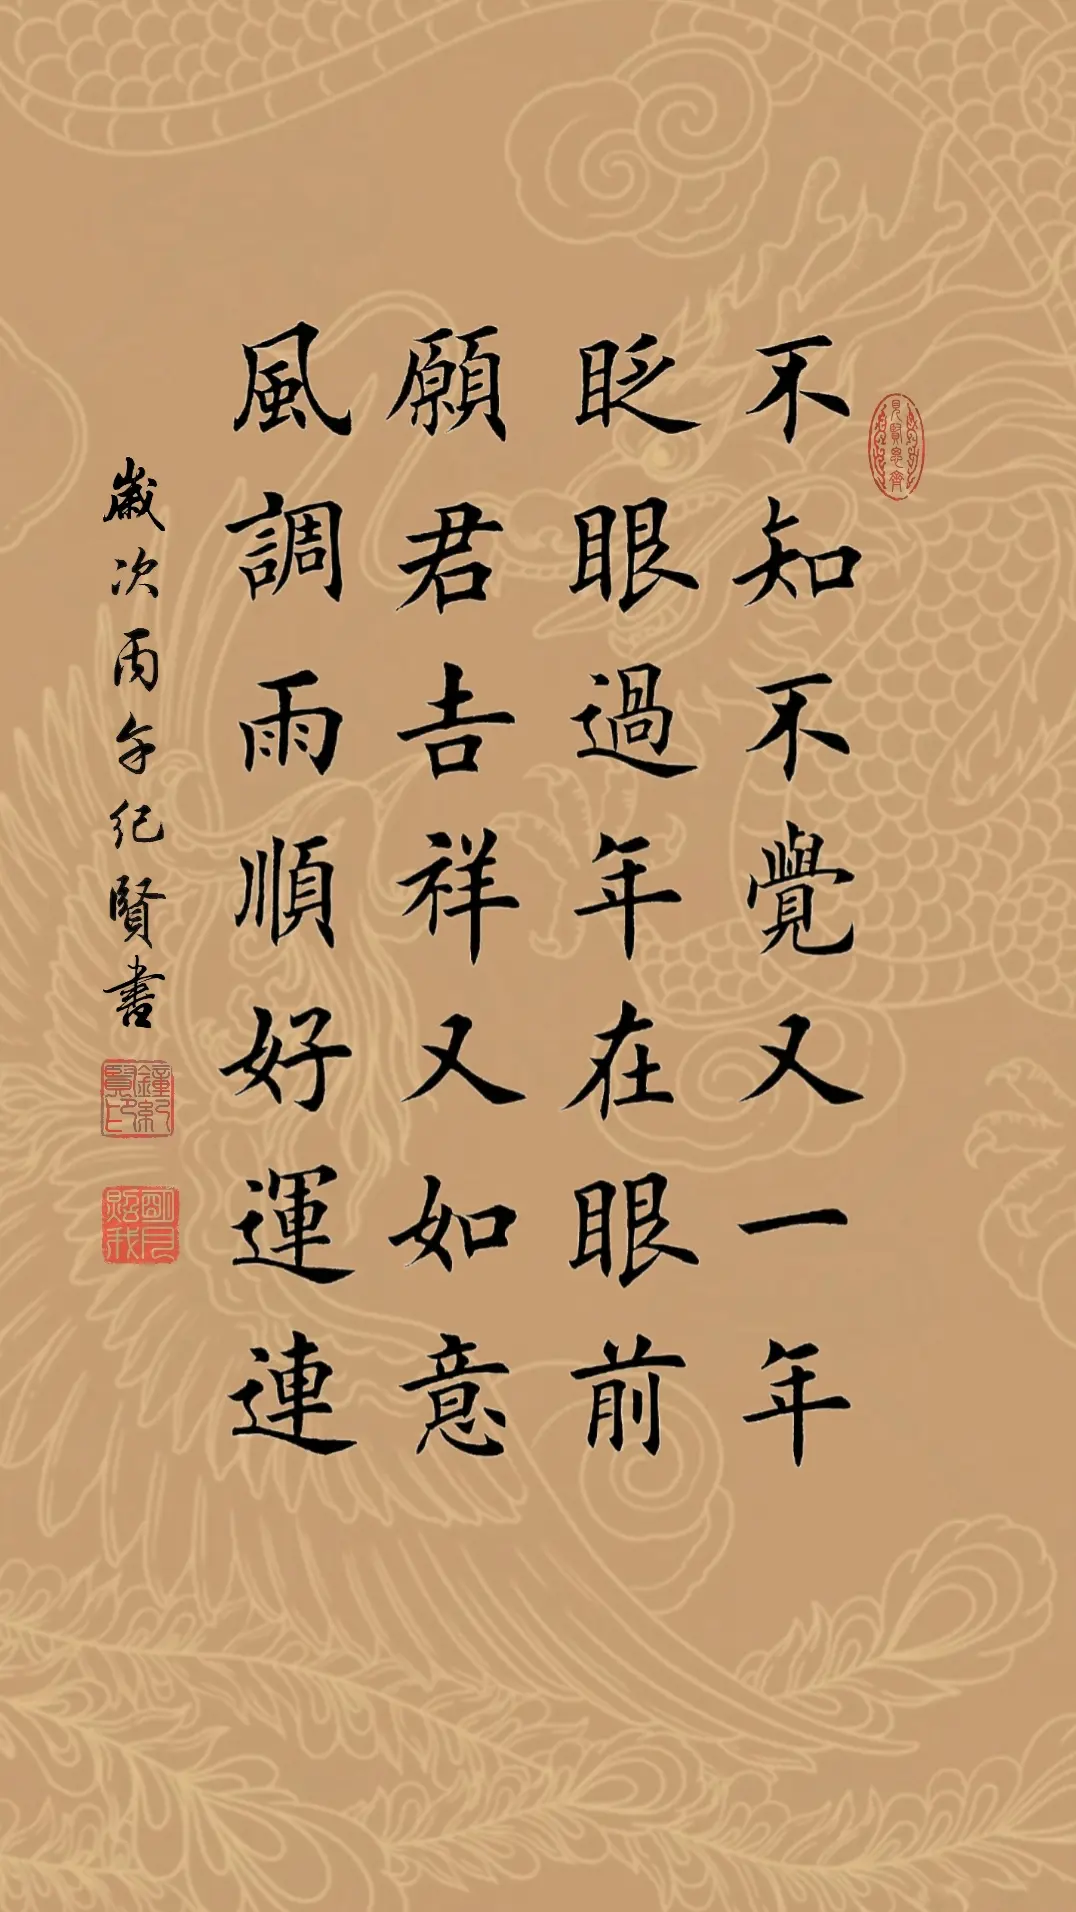 不知不覺又一年
眨眼過年在眼前
願君吉祥又如意
風調雨順好運連
歲次丙午紀賢書
見賢思齊
鐘紀賢印